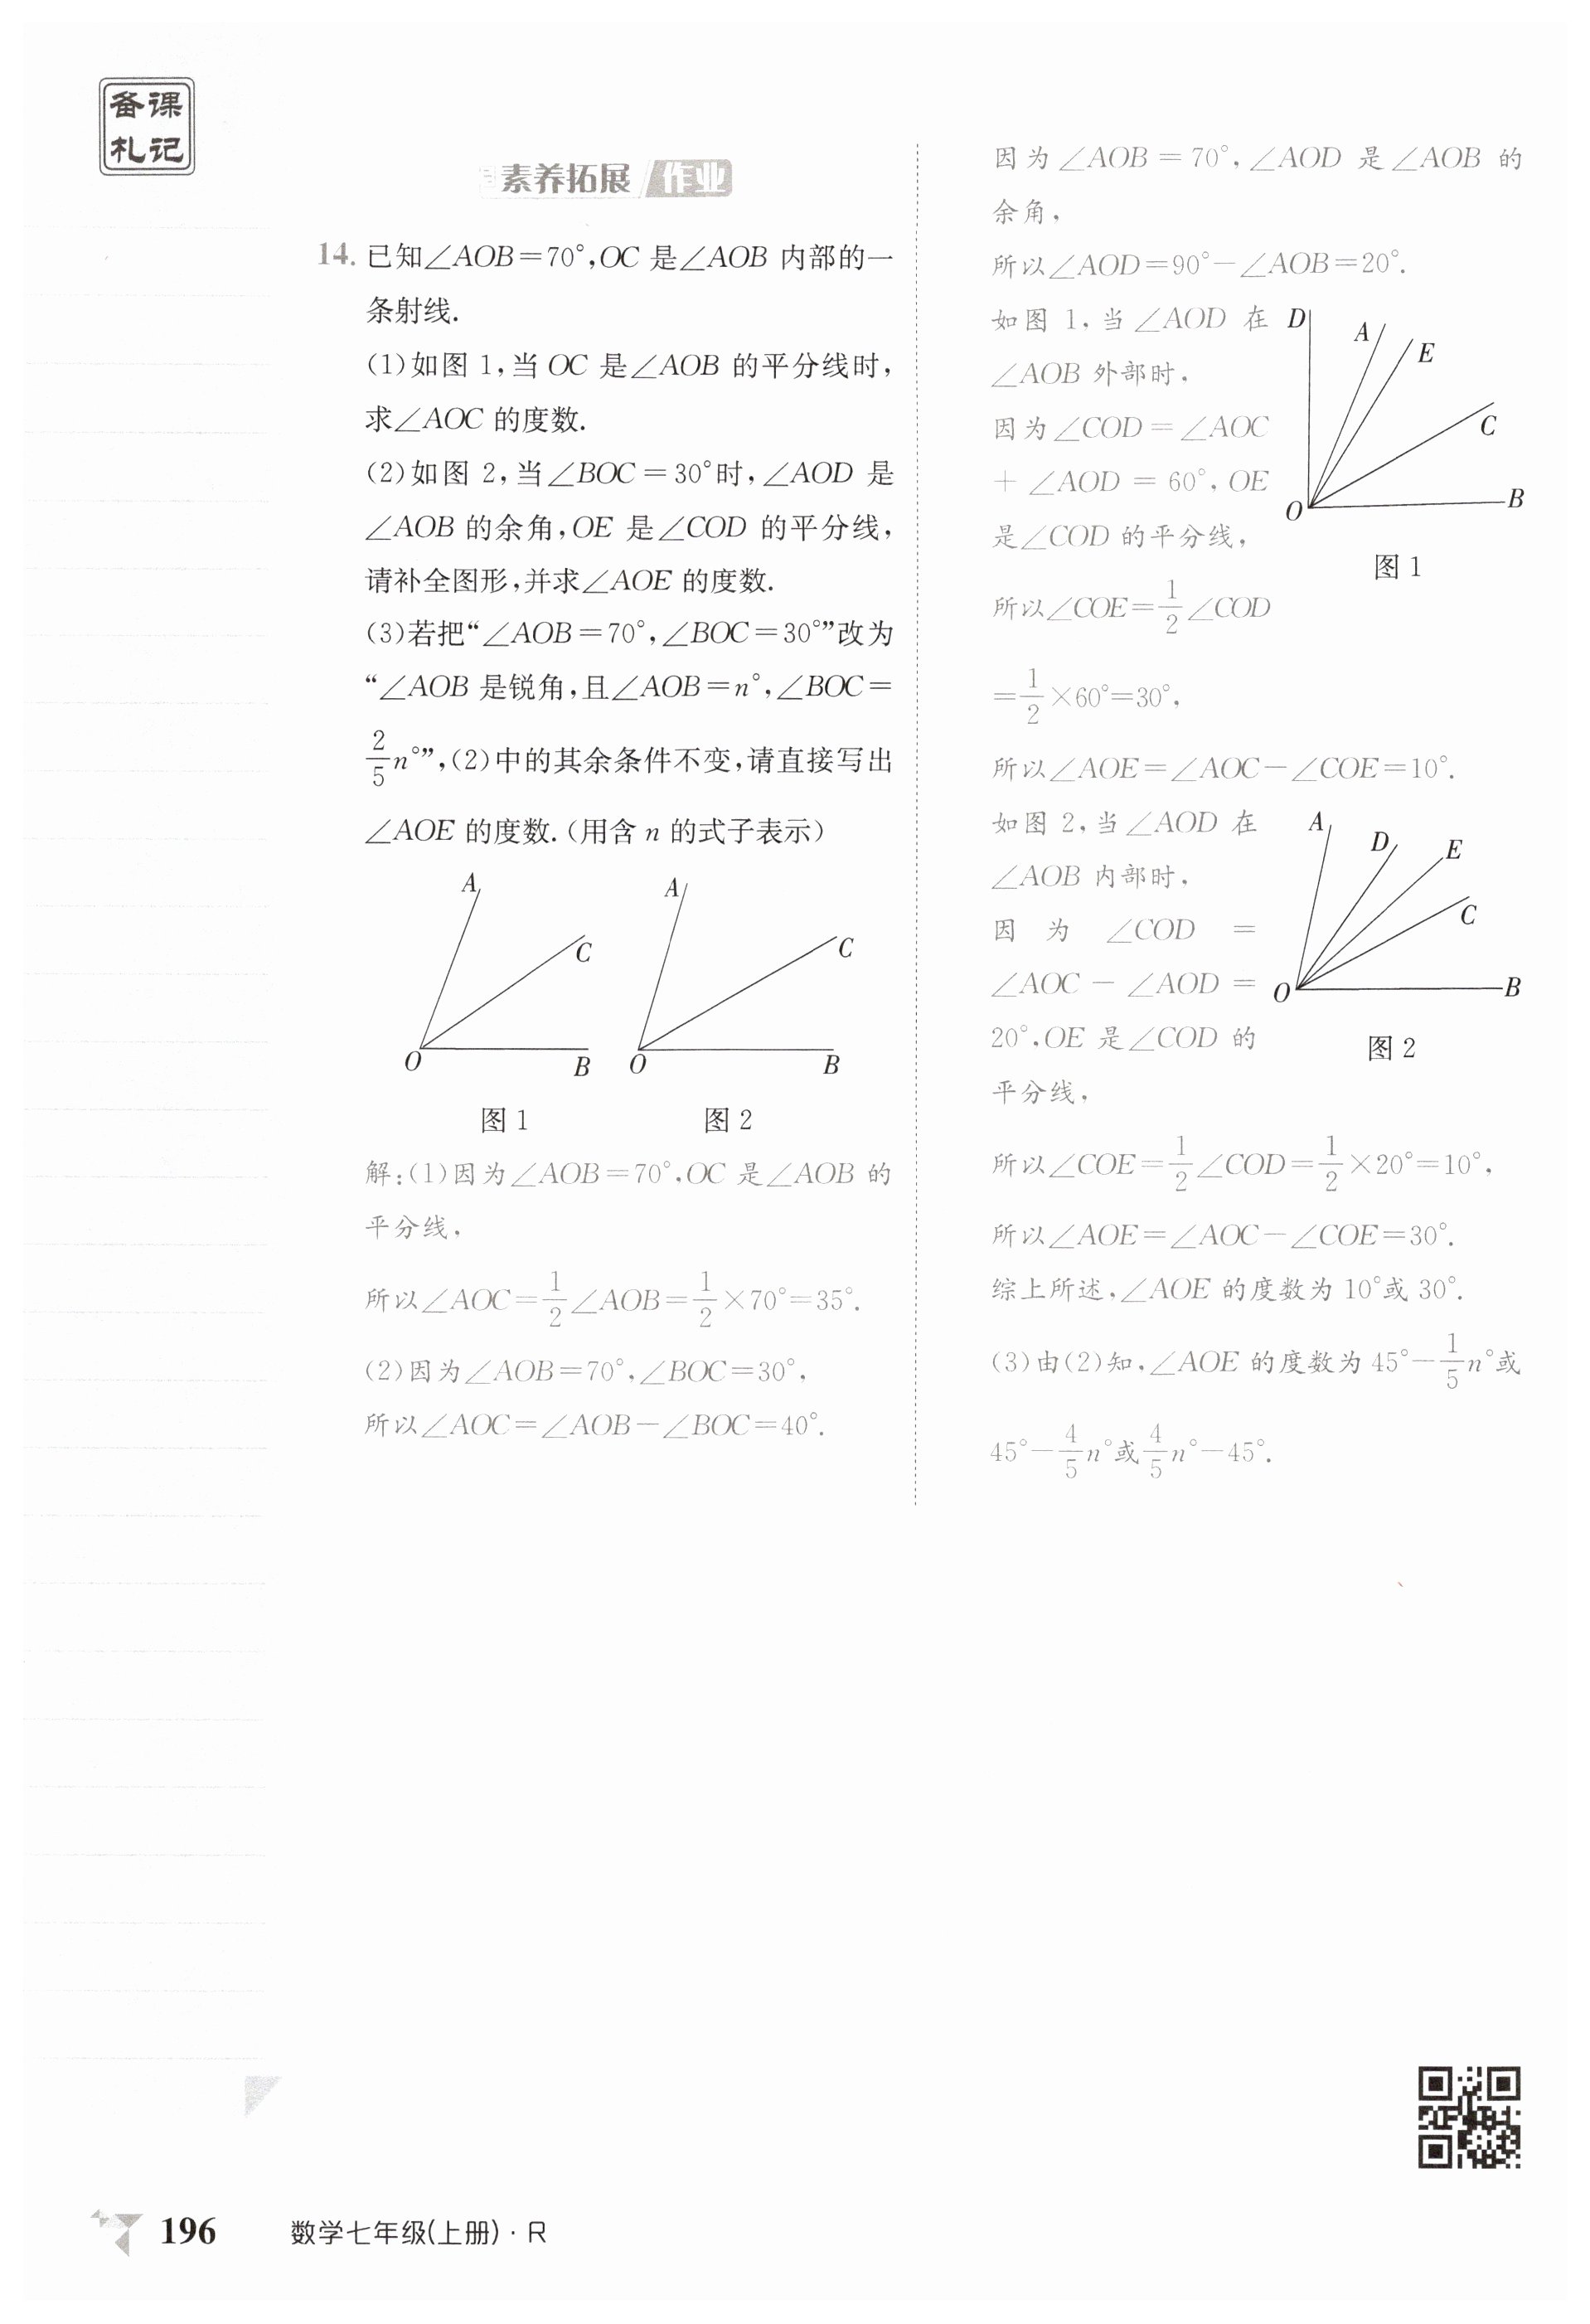 备课
札记
素养拓展 作业
14. 已知∠AOB=70°,OC 是∠AOB 内部的一
条射线.
(1)如图 1,当 OC 是∠AOB 的平分线时,
求∠AOC 的度数.
(2)如图 2,当∠BOC=30°时,∠AOD 是
∠AOB 的余角,OE 是∠COD 的平分线,
请补全图形,并求∠AOE 的度数.
(3)若把“∠AOB=70°,∠BOC=30°”改为
“∠AOB 是锐角,且∠AOB=n°,∠BOC=
2/5 n°”,(2)中的其余条件不变,请直接写出
∠AOE 的度数.(用含 n 的式子表示)
A
C
O
B
图 1
A
C
O
B
图 2
解:(1)因为∠AOB=70°,OC 是∠AOB 的
平分线,
所以∠AOC=1/2∠AOB=1/2×70°=35°.
(2)因为∠AOB=70°,∠BOC=30°,
所以∠AOC=∠AOB-∠BOC=40°.
因为∠AOB=70°,∠AOD 是∠AOB 的
余角,
所以∠AOD=90°-∠AOB=20°.
如图 1,当∠AOD 在
∠AOB 外部时,
因为∠COD=∠AOC
+∠AOD=60°,OE
是∠COD 的平分线,
所以∠COE=1/2∠COD
=1/2×60°=30°,
D
A
E
C
O
B
图 1
所以∠AOE=∠AOC-∠COE=10°.
如图 2,当∠AOD 在
∠AOB 内部时,
因为∠COD=
∠AOC-∠AOD=
20°,OE 是∠COD 的
平分线,
A
D
E
C
O
B
图 2
所以∠COE=1/2∠COD=1/2×20°=10°,
所以∠AOE=∠AOC-∠COE=30°.
综上所述,∠AOE 的度数为 10°或 30°.
(3)由(2)知,∠AOE 的度数为 45°-1/5 n°或
45°-4/5 n°或4/5 n°-45°.
196 数学七年级(上册)·R